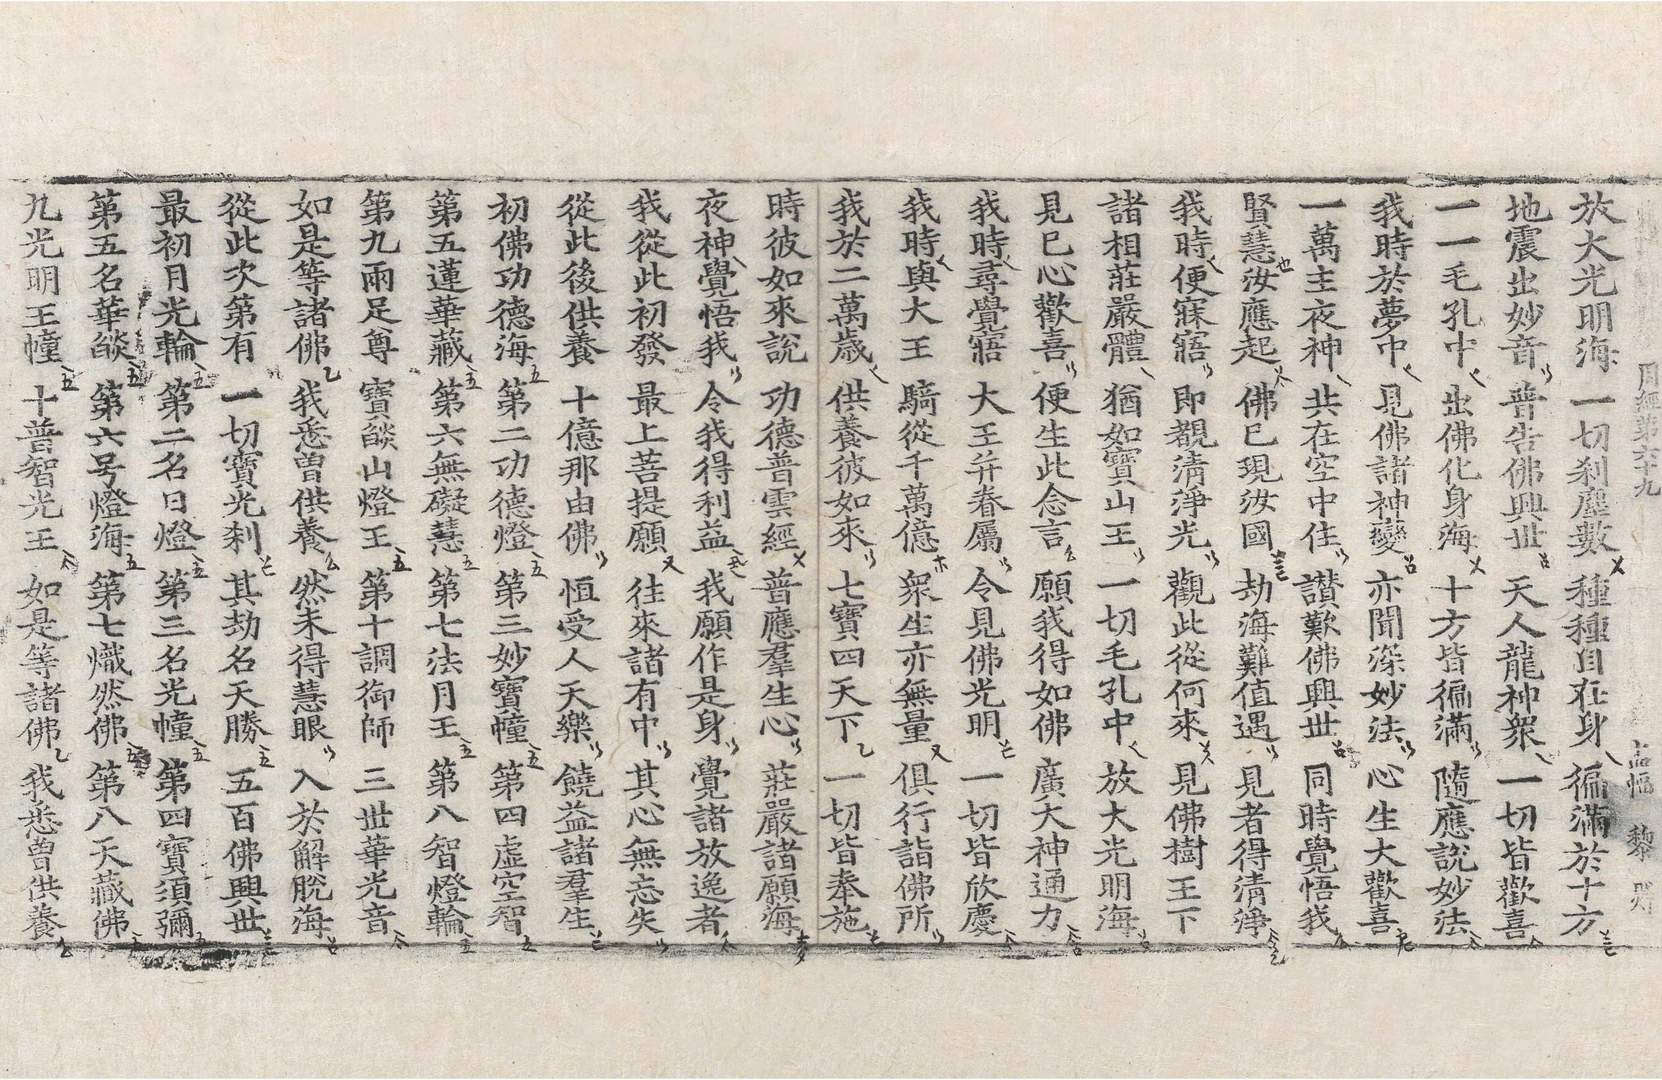 周經第六十九
放大光明海 一切刹塵數 種種自在身 徧滿於十方
地震出妙音 普告佛興世 天人龍神衆 一切皆歡喜
一一毛孔中 出佛化身海 十方皆徧滿 隨應說妙法
我時於夢中 見佛諸神變 亦聞深妙法 心生大歡喜
一萬主夜神 共在空中住 讃歎佛興世 同時覺悟我
賢慧汝應起 佛已現汝國 劫海難值遇 見者得清淨
我時便寐寤 即覩清淨光 觀此從何來 見佛樹王下
諸相莊嚴體 猶如寶山王 一切毛孔中 放大光明海
見已心歡喜 便生此念言 願我得如佛 廣大神通力
我時尋覺寤 大王并眷屬 令見佛光明 一切皆欣慶
我時與大王 騎從千萬億 衆生亦無量 俱行詣佛所
我於二萬歲 供養彼如來 七寶四天下 一切皆奉施
時彼如來說 功德普雲經 普應羣生心 莊嚴諸願海
夜神覺悟我 令我得利益 我願作是身 覺諸放逸者
我從此初發 最上菩提願 往來諸有中 其心無忘失
從此後供養 十億那由佛 恒受人天樂 饒益諸羣生
初佛功德海 第二功德燈 第三妙寶幢 第四虛空智
第五蓮華藏 第六無礙慧 第七法月王 第八智燈輪
第九兩足尊 寶燄山燈王 第十調御師 三世華光音
如是等諸佛 我悉曾供養 然未得慧眼 入於解脫海
從此次第有 一切寶光刹 其劫名天勝 五百佛興世
最初月光輪 第二名日燈 第三名光幢 第四寶須彌
第五名華燄 第六号燈海 第七熾然佛 第八天藏佛
九光明王幢 十普智光王 如是等諸佛 我悉曾供養